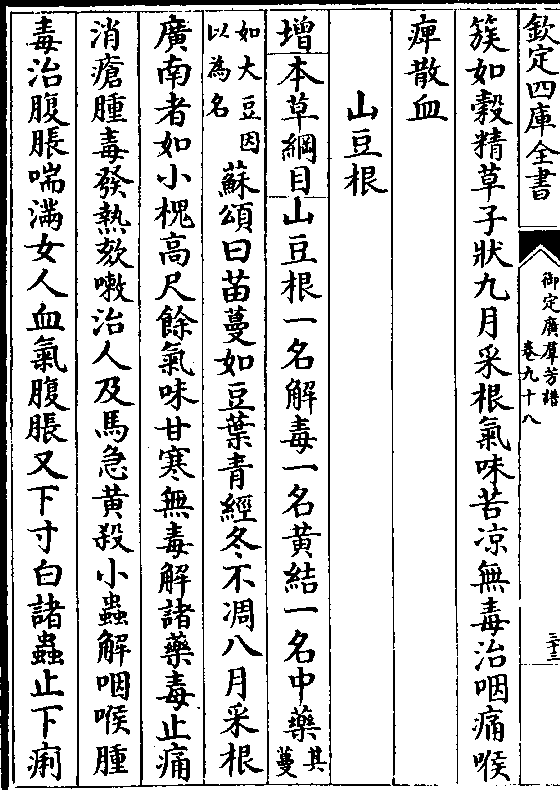 欽定四庫全書
御定廣羣芳譜
卷九十八
三十三
簇如穀精草子狀九月采根氣味苦凉無毒治咽痛喉
痺散血
山豆根
增本草綱目山豆根一名解毒一名黄結一名中藥其蔓
如大豆因以為名蘇頌曰苗蔓如豆葉青經冬不凋八月采根
廣南者如小槐高尺餘氣味甘寒無毒解諸藥毒止痛
消瘡腫毒發熱欬嗽治人及馬急黄殺小蟲解咽喉腫
毒治腹脹喘滿女人血氣腹脹又下寸白諸蟲止下痢